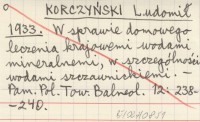 KORCZYŃSKI Ludomił
1933. W sprawie domowego
leczenia krajowemi wodami
mineralnemi, w szczególności
wodami szczawnickiemi. —
Pam. Pol. Tow. Balneol. 12: 238-
-240.